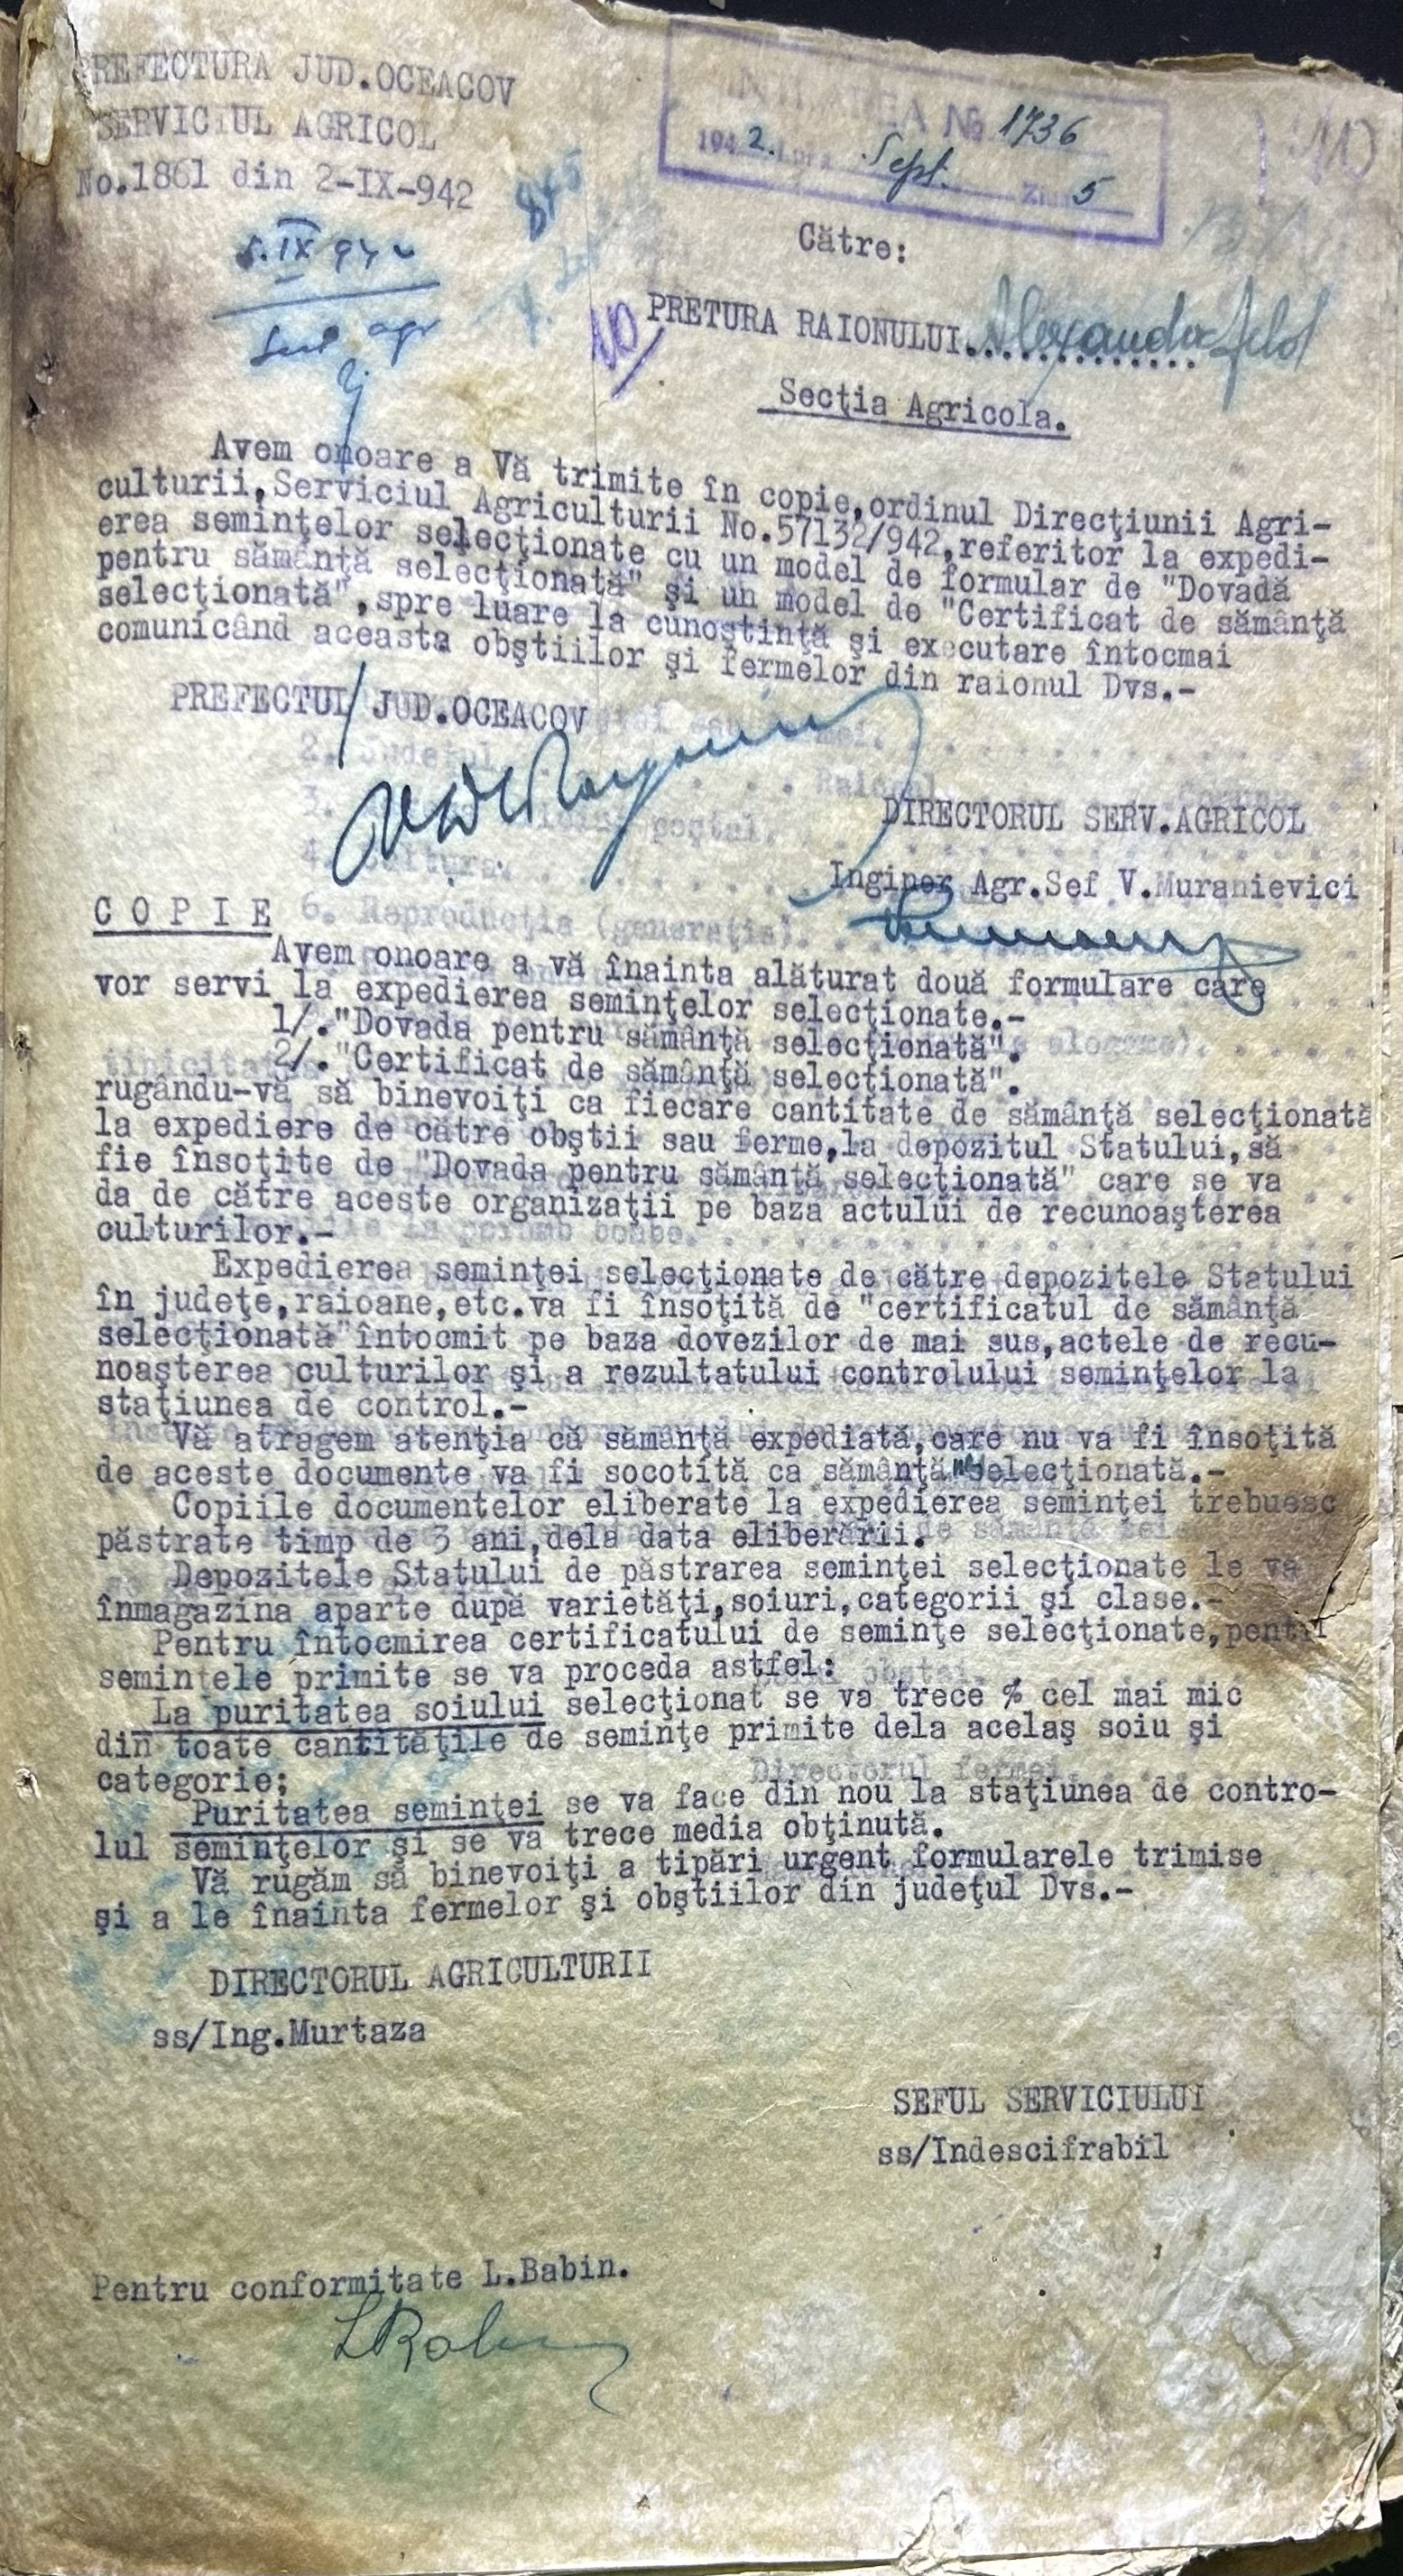 PREFECTURA JUD.OCEACOV
SERVICIUL AGRICOL
No.1861 din 2-IX-942
No 1736
1942. Luna Sept. Ziua 5
845
5.IX 942
Către:
10
PRETURA RAIONULUI.............
Secţia Agricola.
Avem onoare a Vă trimite în copie,ordinul Direcţiunii Agri-
culturii,Serviciul Agriculturii No.57132/942,referitor la expedi-
erea seminţelor selecţionate cu un model de formular de "Dovadă
pentru sămânţă selecţionată" şi un model de "Certificat de sămânţă
selecţionată",spre luare la cunoştinţă şi executare întocmai
comunicând aceasta obştiilor şi fermelor din raionul Dvs.-
PREFECTUL JUD.OCEACOV
DIRECTORUL SERV.AGRICOL
Inginer Agr.Sef V.Muranievici
C O P I E
Avem onoare a vă înainta alăturat două formulare care
vor servi la expedierea seminţelor selecţionate.-
1/."Dovada pentru sămânţă selecţionată".
2/."Certificat de sămânţă selecţionată".
rugându-vă să binevoiţi ca fiecare cantitate de sămânţă selecţionată
la expediere de către obştii sau ferme,la depozitul Statului,să
fie însoţite de "Dovada pentru sămânţă selecţionată" care se va
da de către aceste organizaţii pe baza actului de recunoaşterea
culturilor.-
Expedierea seminţei selecţionate de către depozitele Statului
în judeţe,raioane,etc.va fi însoţită de "certificatul de sămânţă
selecţionată"întocmit pe baza dovezilor de mai sus,actele de recu-
noaşterea culturilor şi a rezultatului controlului seminţelor la
staţiunea de control.-
Vă atragem atenţia că sămânţă expediată,care nu va fi însoţită
de aceste documente va fi socotită ca sămânţă selecţionată.-
Copiile documentelor eliberate la expedierea seminţei trebuesc
păstrate timp de 3 ani,dela data eliberării.
Depozitele Statului de păstrarea seminţei selecţionate le va
înmagazina aparte după varietăţi,soiuri,categorii şi clase.-
Pentru întocmirea certificatului de seminţe selecţionate,pentru
semintele primite se va proceda astfel:
La puritatea soiului selecţionat se va trece % cel mai mic
din toate cantităţile de seminţe primite dela acelaş soiu şi
categorie;
Puritatea seminţei se va face din nou la staţiunea de contro-
lul seminţelor şi se va trece media obţinută.
Vă rugăm să binevoiţi a tipări urgent formularele trimise
şi a le înainta fermelor şi obştiilor din judeţul Dvs.-
DIRECTORUL AGRICULTURII
ss/Ing.Murtaza
SEFUL SERVICIULUI
ss/Indescifrabil
Pentru conformitate L.Babin.